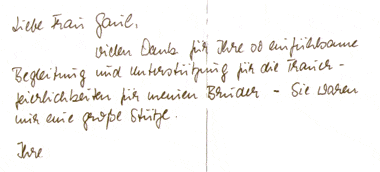 Liebe Frau Garil,
vielen Dank für Ihre so einfühlsame
Begleitung und Unterstützung für die Trauer-
feierlichkeiten für meinen Bruder - Sie waren
mir eine große Stütze.
Ihre